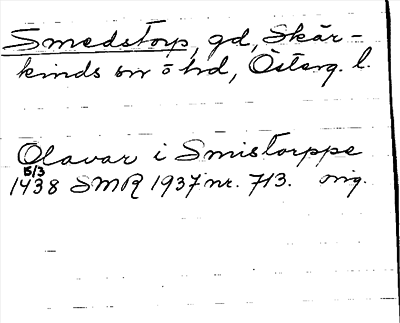 Smedstorp, gd, Skär-
kinds sn o hd, Österg. l.
Olavar i Smistorppe
15/3
1438 SMR 1937 nr. 713. orig.